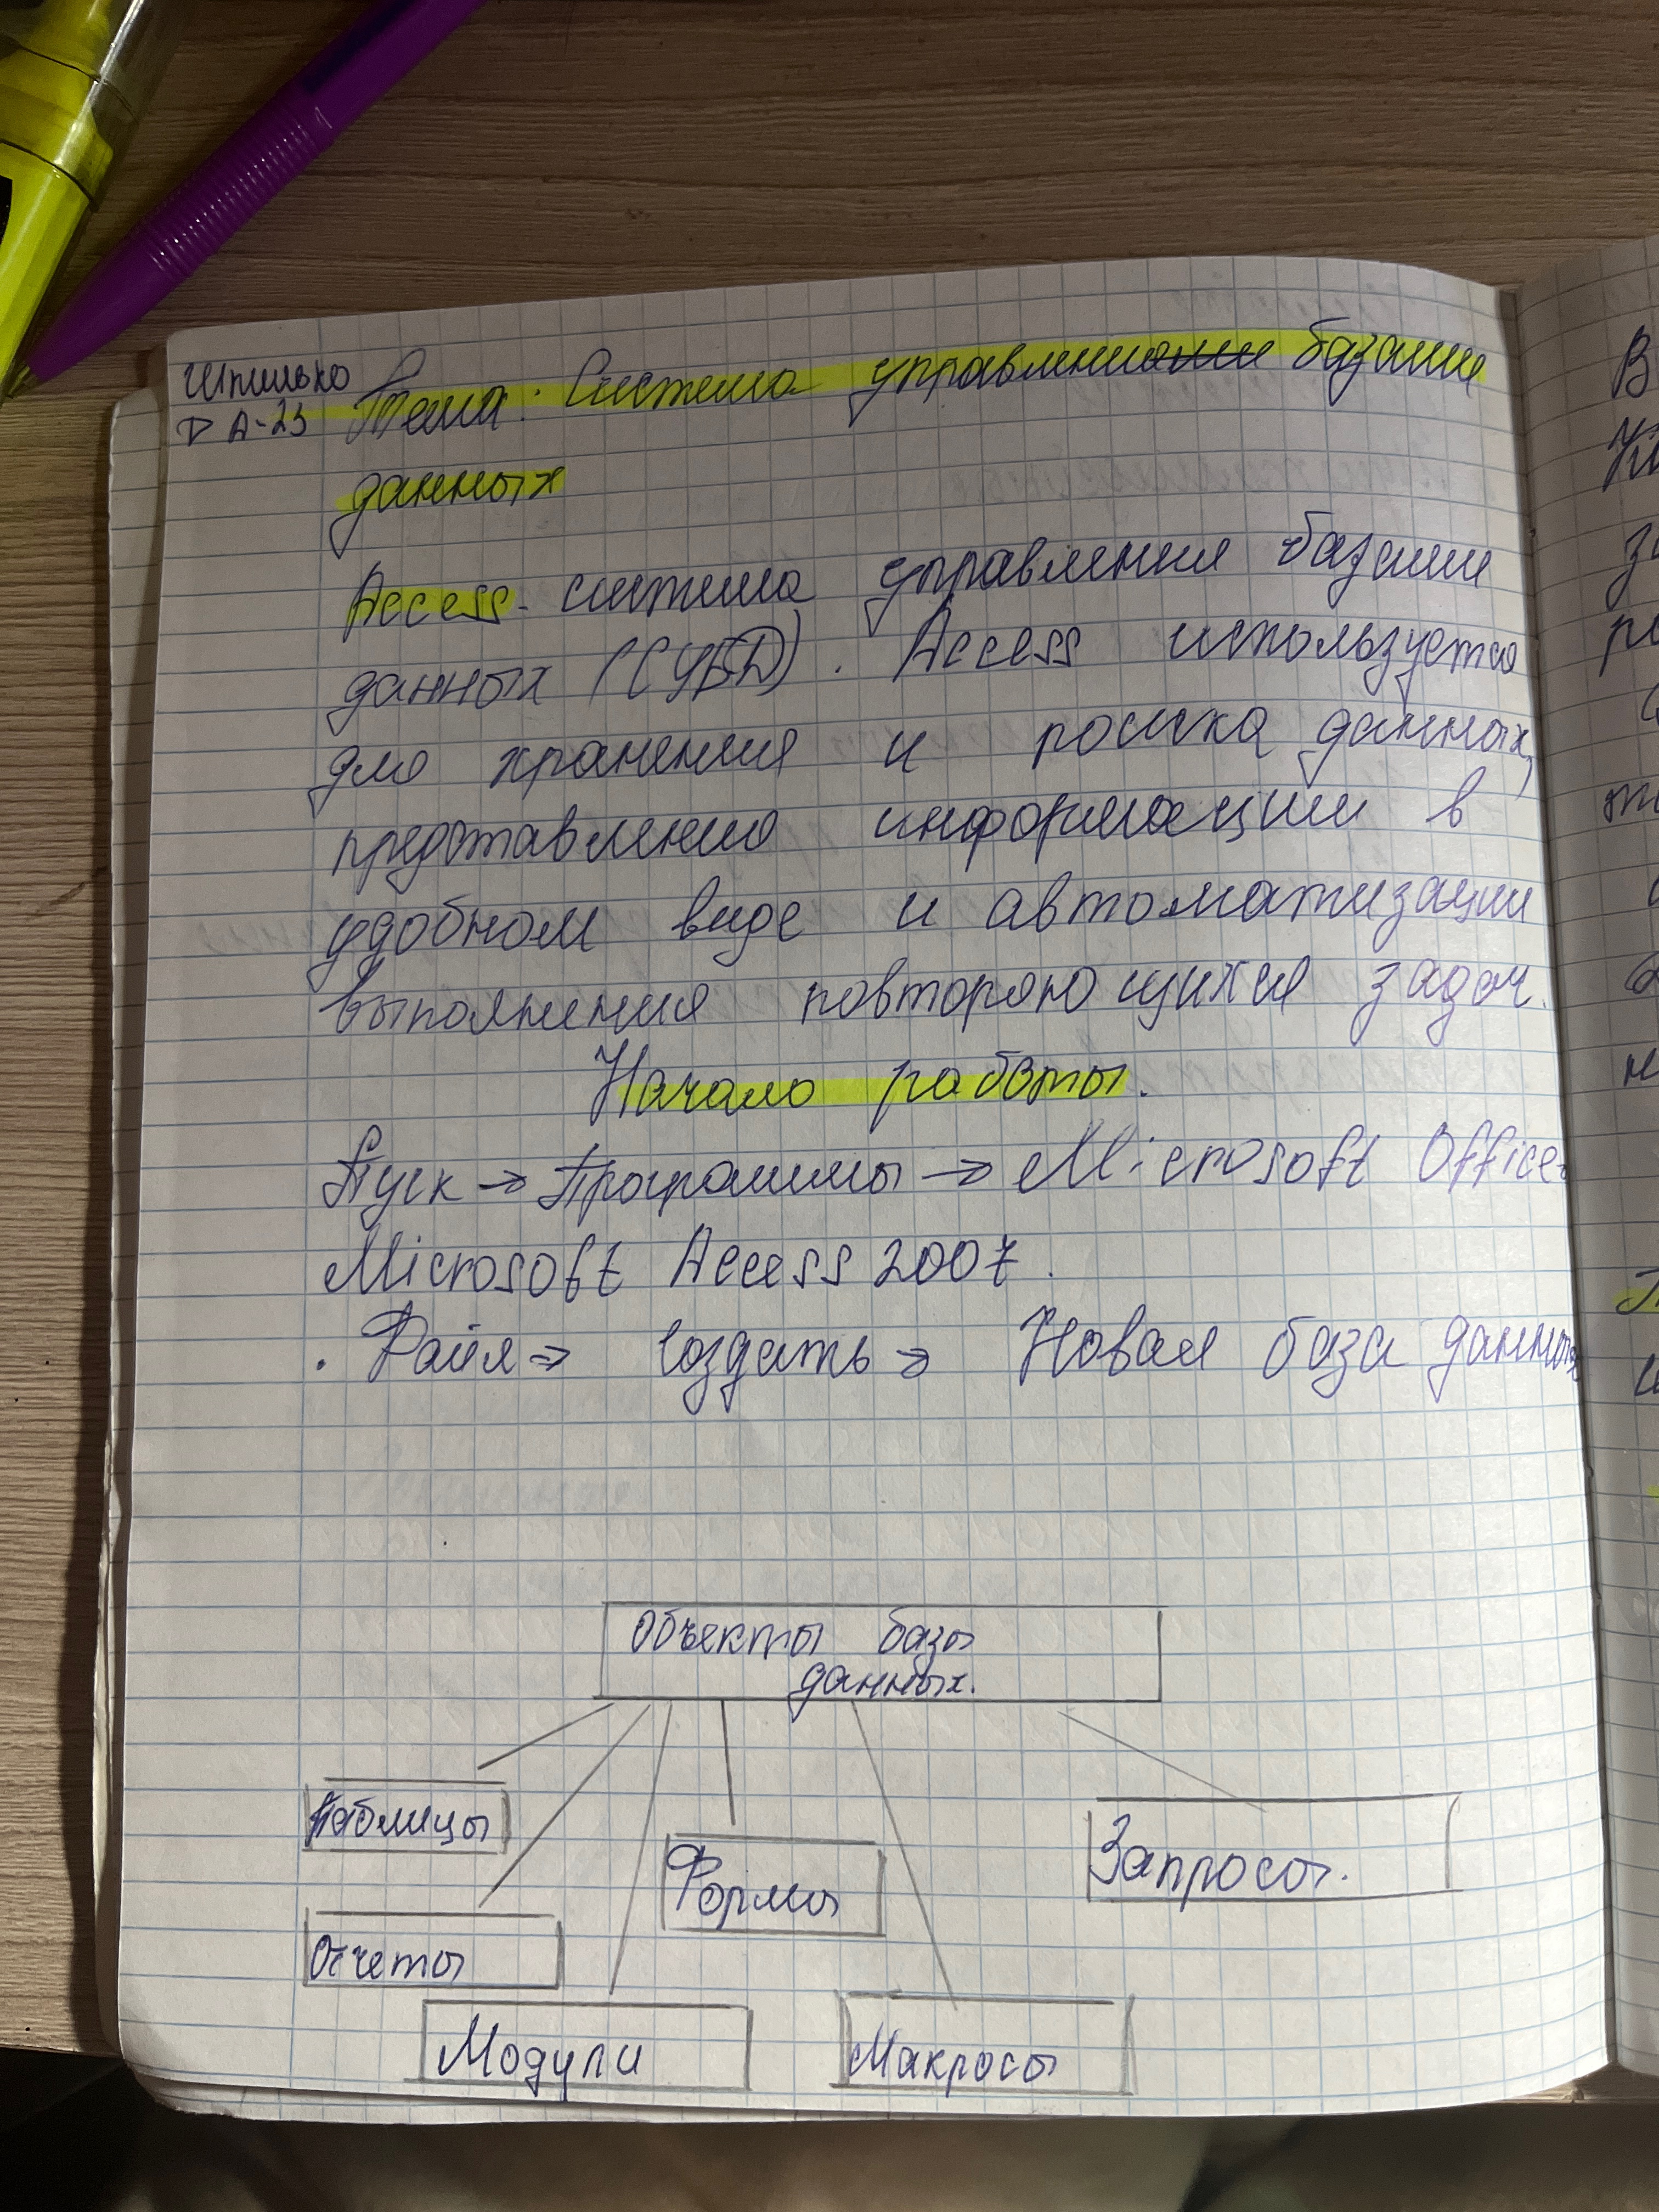 Шпилько
DA-23
Тема: Система управления базами
данных
Access - система управления базами
данных (СУБД). Access используется
для хранения и роиска данных,
представления информации в
удобном виде и автоматизации
выполнения повторяющихся задач.
Начало работы.
Пуск → Программы → Microsoft Office→
Microsoft Access 2007.
. Файл → Создать → Новая база данных
Объекты базы
данных.
Таблицы
Формы
Запросы.
Отчеты
Модули
Макросы